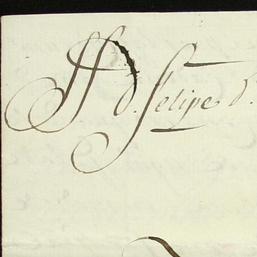 Sr. D. Felipe d.